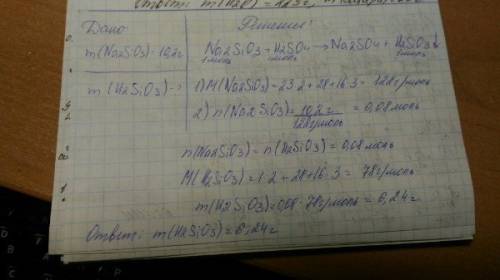 Ответ: m(H2O) =
Дано
Решение:
m(Na2SiO3) = 10,2г
Na2SiO3 + H2SO4 → Na2SO4 + H2SiO3↓
1моль 1моль 1моль
m(H2SiO3) - ?
1) M(Na2SiO3) = 23·2+28+16·3 = 122г/моль
2) n(Na2SiO3) = 10,2г / 122г/моль = 0,08моль
n(Na2SiO3) = n(H2SiO3) = 0,08моль
M(H2SiO3) = 1·2+28+16·3 = 78г/моль
m(H2SiO3) = 0,08·78г/моль = 6,24г
Ответ: m(H2SiO3) = 6,24г